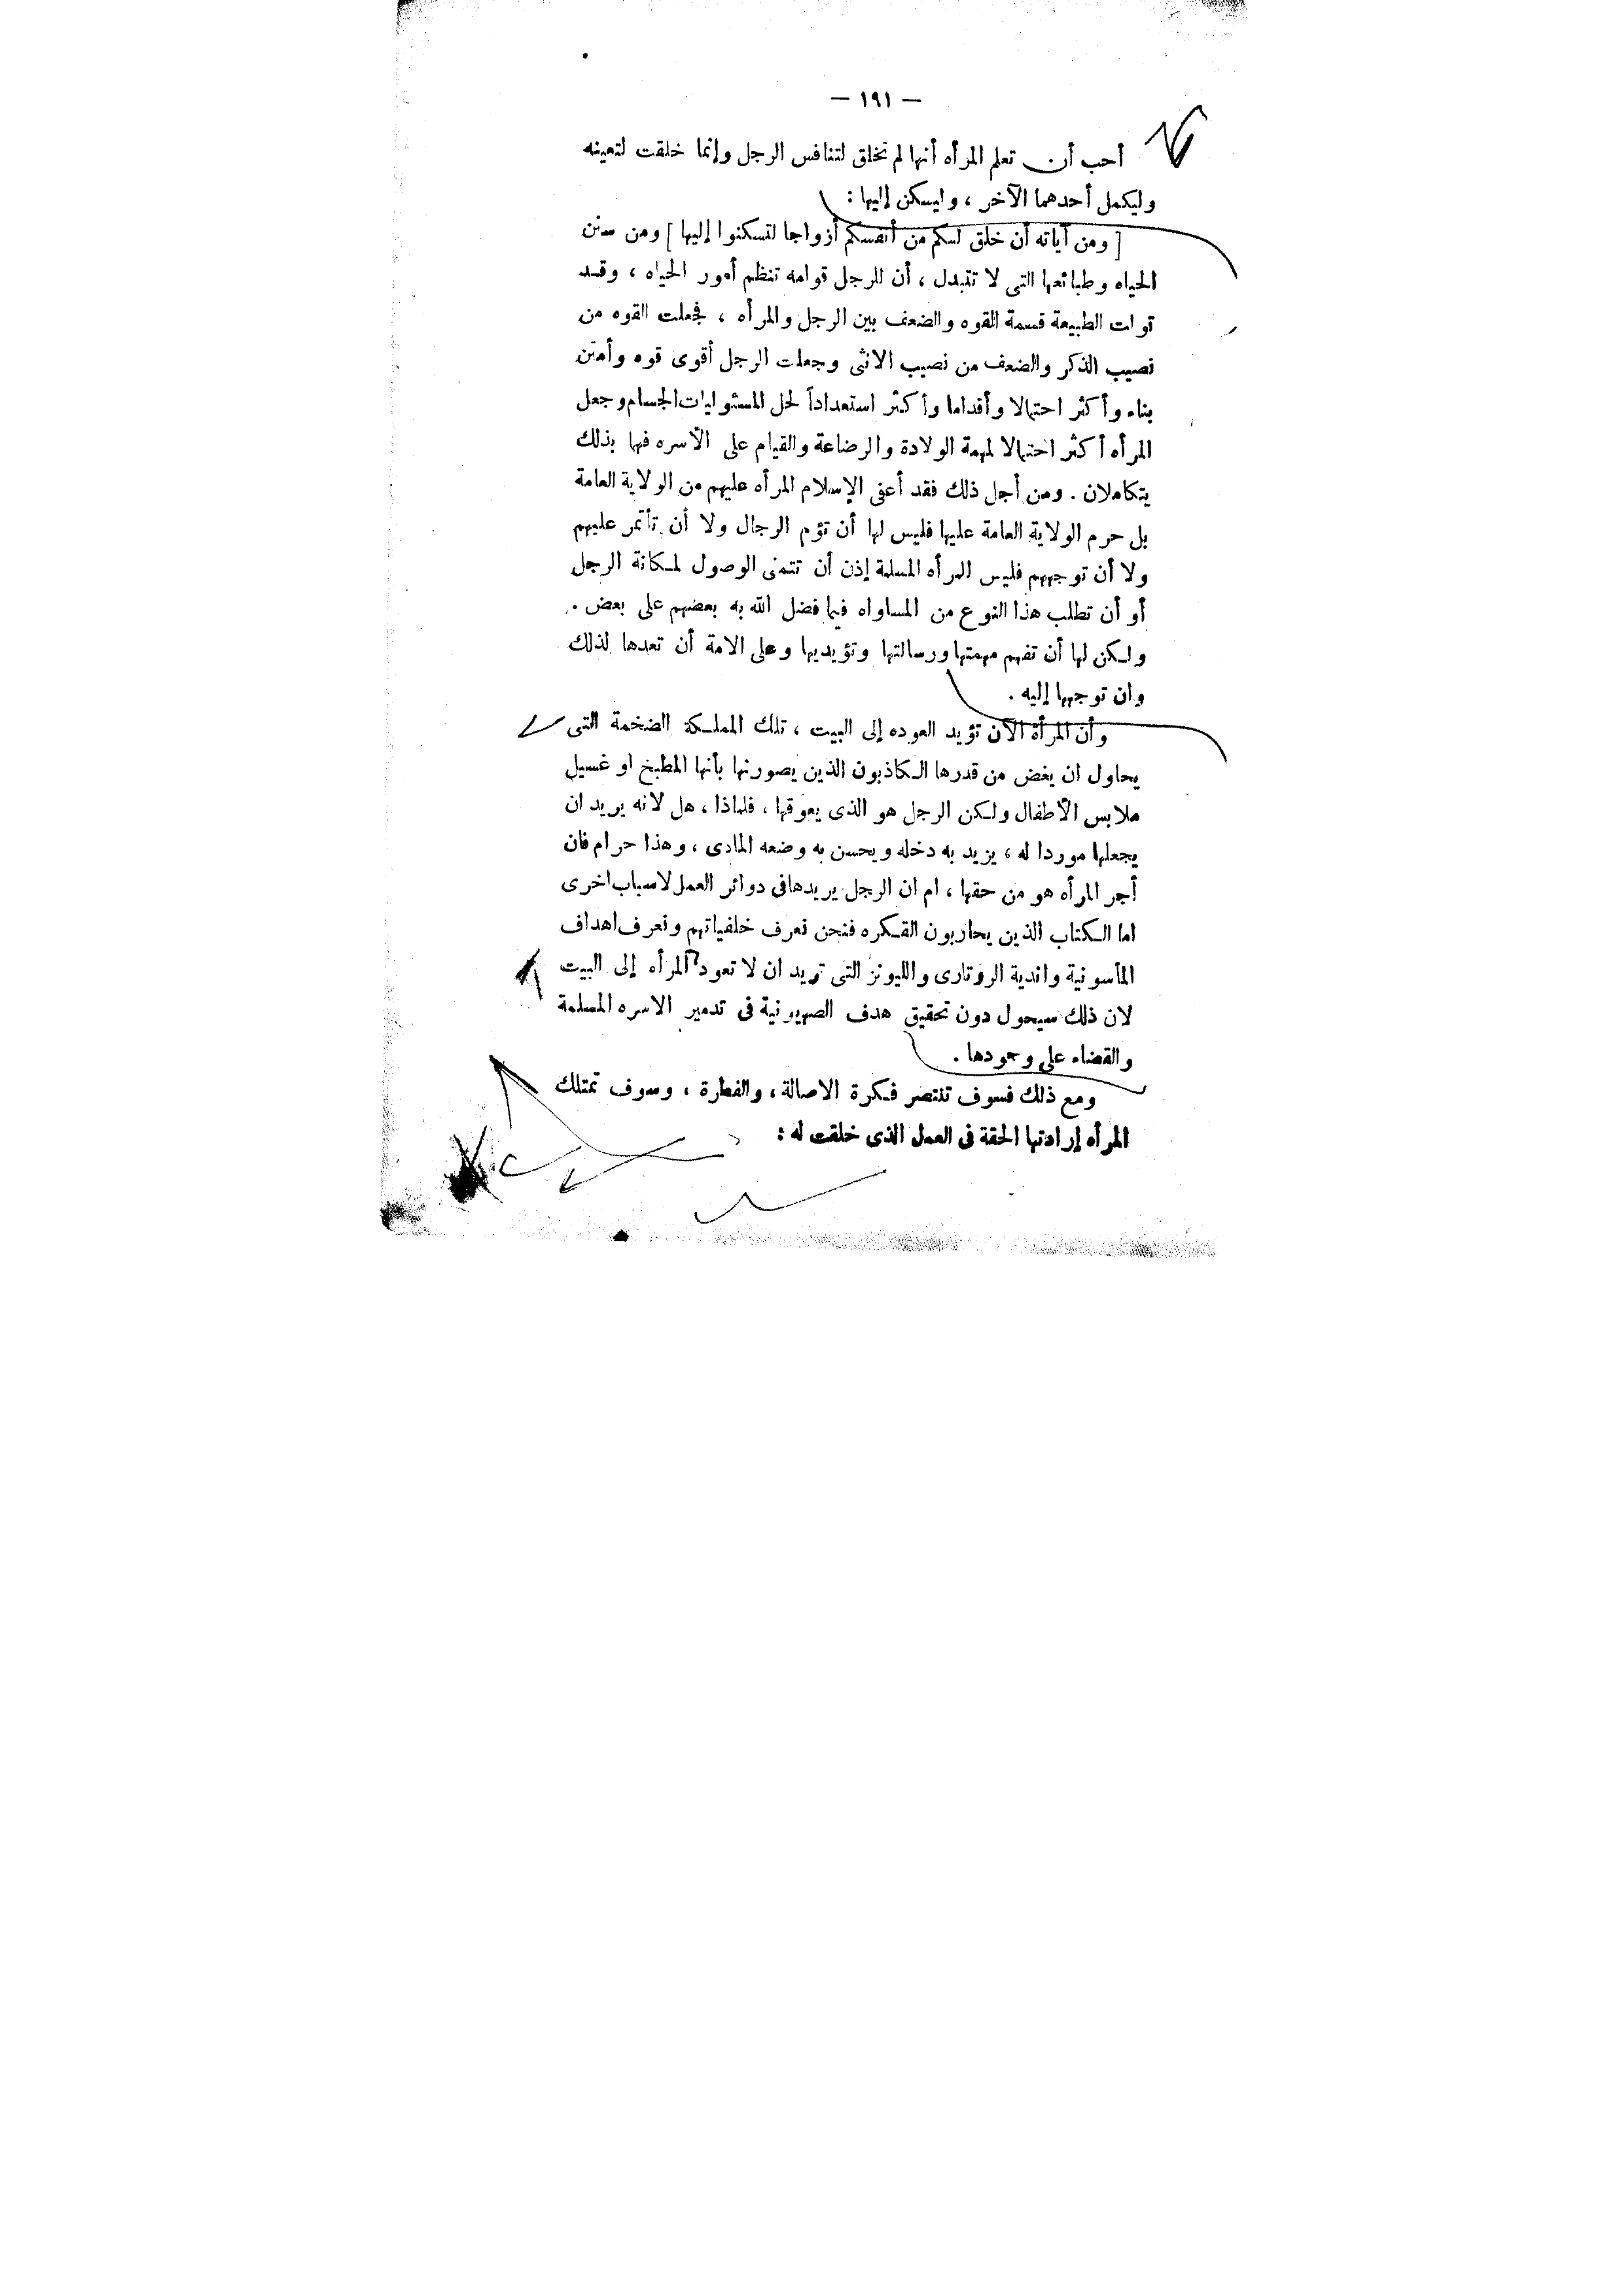 — ١٩١ —
أحب أن تعلم المرأه أنها لم تخلق لتنافس الرجل وإنما خلقت لتعينه
وليكمل أحدهما الآخر ، وليسكن إليها :
[ ومن آياته أن خلق لكم من أنفسكم أزواجا لتسكنوا إليها ] ومن سنن
الحياه وطبائعها التى لا تتبدل ، أن للرجل قوامه تنظم أمور الحياه ، وقد
تولت الطبيعة قسمة القوه والضعف بين الرجل والمرأه ، فجعلت القوه من
نصيب الذكر والضعف من نصيب الانثى وجعلت الرجل أقوى قوه وأمتن
بناء وأكثر احتمالا وأقداما وأكثر استعداداً لحمل المسئوليات الجسام وجعل
المرأه أكثر احتمالا لمهمة الولادة والرضاعة والقيام على الأسره فهما بذلك
يتكاملان . ومن أجل ذلك فقد أعفى الإسلام المرأه عليهم من الولاية العامة
بل حرم الولاية العامة عليها فليس لها أن تؤم الرجال ولا أن تأتمر عليهم
ولا أن توجههم فليس للمرأه المسلمة إذن أن تتمنى الوصول لمكانة الرجل
أو أن تطلب هذا النوع من المساواه فيما فضل الله به بعضهم على بعض .
ولكن لها أن تفهم مهمتها ورسالتها وتؤيديها وعلى الامة أن تعدها لذلك
وان توجهها إليه .
وأن المرأة الآن تؤيد العوده إلى البيت ، تلك المملكة الضخمة التى
يحاول ان يغض من قدرها الكاذبون الذين يصورنها بأنها المطبخ او غسيل
ملابس الأطفال ولكن الرجل هو الذى يعوقها ، فلماذا ، هل لانه يريد ان
يجعلها موردا له ، يزيد به دخله ويحسن به وضعه المادى ، وهذا حرام فان
أجر المرأه هو من حقها ، ام ان الرجل يريدها فى دوائر العمل لاسباب اخرى
اما الكتاب الذين يحاربون الفكره فنحن نعرف خلفياتهم ونعرف اهداف
المأسونية واندية الروتارى والليونز التى تريد ان لا تعود المرأه إلى البيت
لان ذلك سيحول دون تحقيق هدف الصهيونية فى تدمير الاسره المسلمة
والقضاء على وجودها .
ومع ذلك فسوف تنتصر فكرة الاصالة ، والفطرة ، وسوف تمتلك
المرأه إرادتها الحقة فى العمل الذى خلقت له :